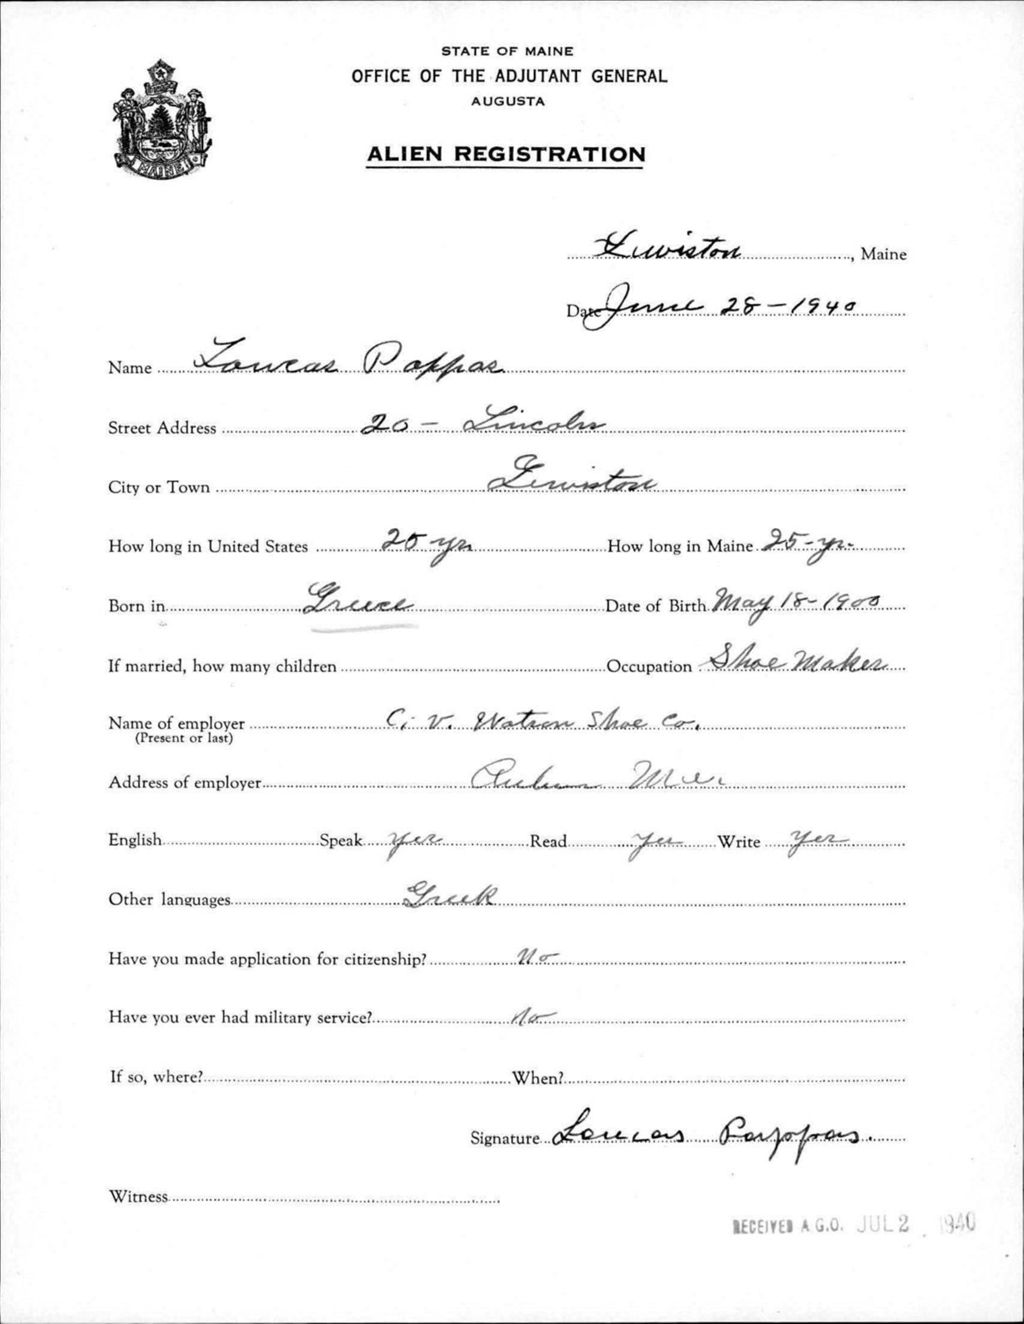 STATE OF MAINE
OFFICE OF THE ADJUTANT GENERAL
AUGUSTA
ALIEN REGISTRATION
MAINE
Lewiston, Maine
Date June 28 - 1940
Name Loucas Pappas
Street Address 20 - Lincoln
City or Town Lewiston
How long in United States 25 yr How long in Maine 25 - yr.
Born in Greece Date of Birth May 18 - 1900
If married, how many children Occupation Shoe Maker
Name of employer C. V. Watson Shoe Co.
(Present or last)
Address of employer Auburn Me.
English Speak yes Read yes Write yes
Other languages Greek
Have you made application for citizenship? No
Have you ever had military service? No
If so, where? When?
Signature Loucas Pappas.
Witness
RECEIVED A.G.O. JUL 2 1940